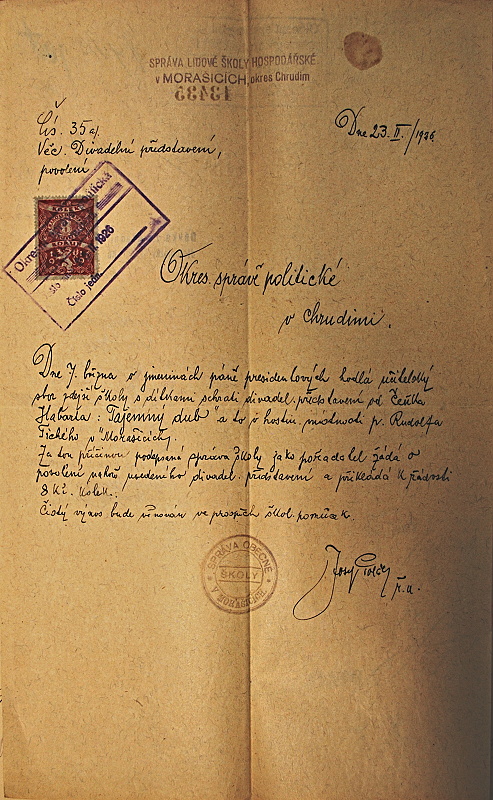 SPRÁVA LIDOVÉ ŠKOLY HOSPODÁŘSKÉ
v MORAŠICÍCH, okres Chrudim
13439
Čís. 35 a/.
Dne 23. II./1926
Věc. Divadelní představení,
povolení
Okres
politická
1926
Číslo jedn.
Okres. správě politické
v Chrudimi.
Dne 7. března o jmeninách páně presidentových hodlá učitelský
sbor zdejší školy s dítkami sehrati divadel. představení od Čeňka
Habarta: "Tajemný dub" a to v hostin. místnosti p. Rudolfa
Tichého v Morašicích.
Za tou příčinou podepsaná správa školy jako pořadatel žádá o
povolení nahoře uvedeného divadel. představení a přikládá k žádosti
8 Kč. kolek.
Čistý výnos bude věnován ve prospěch škol. pomůcek.
SPRÁVA OBECNÉ
ŠKOLY
V MORAŠICÍCH
ř. u.